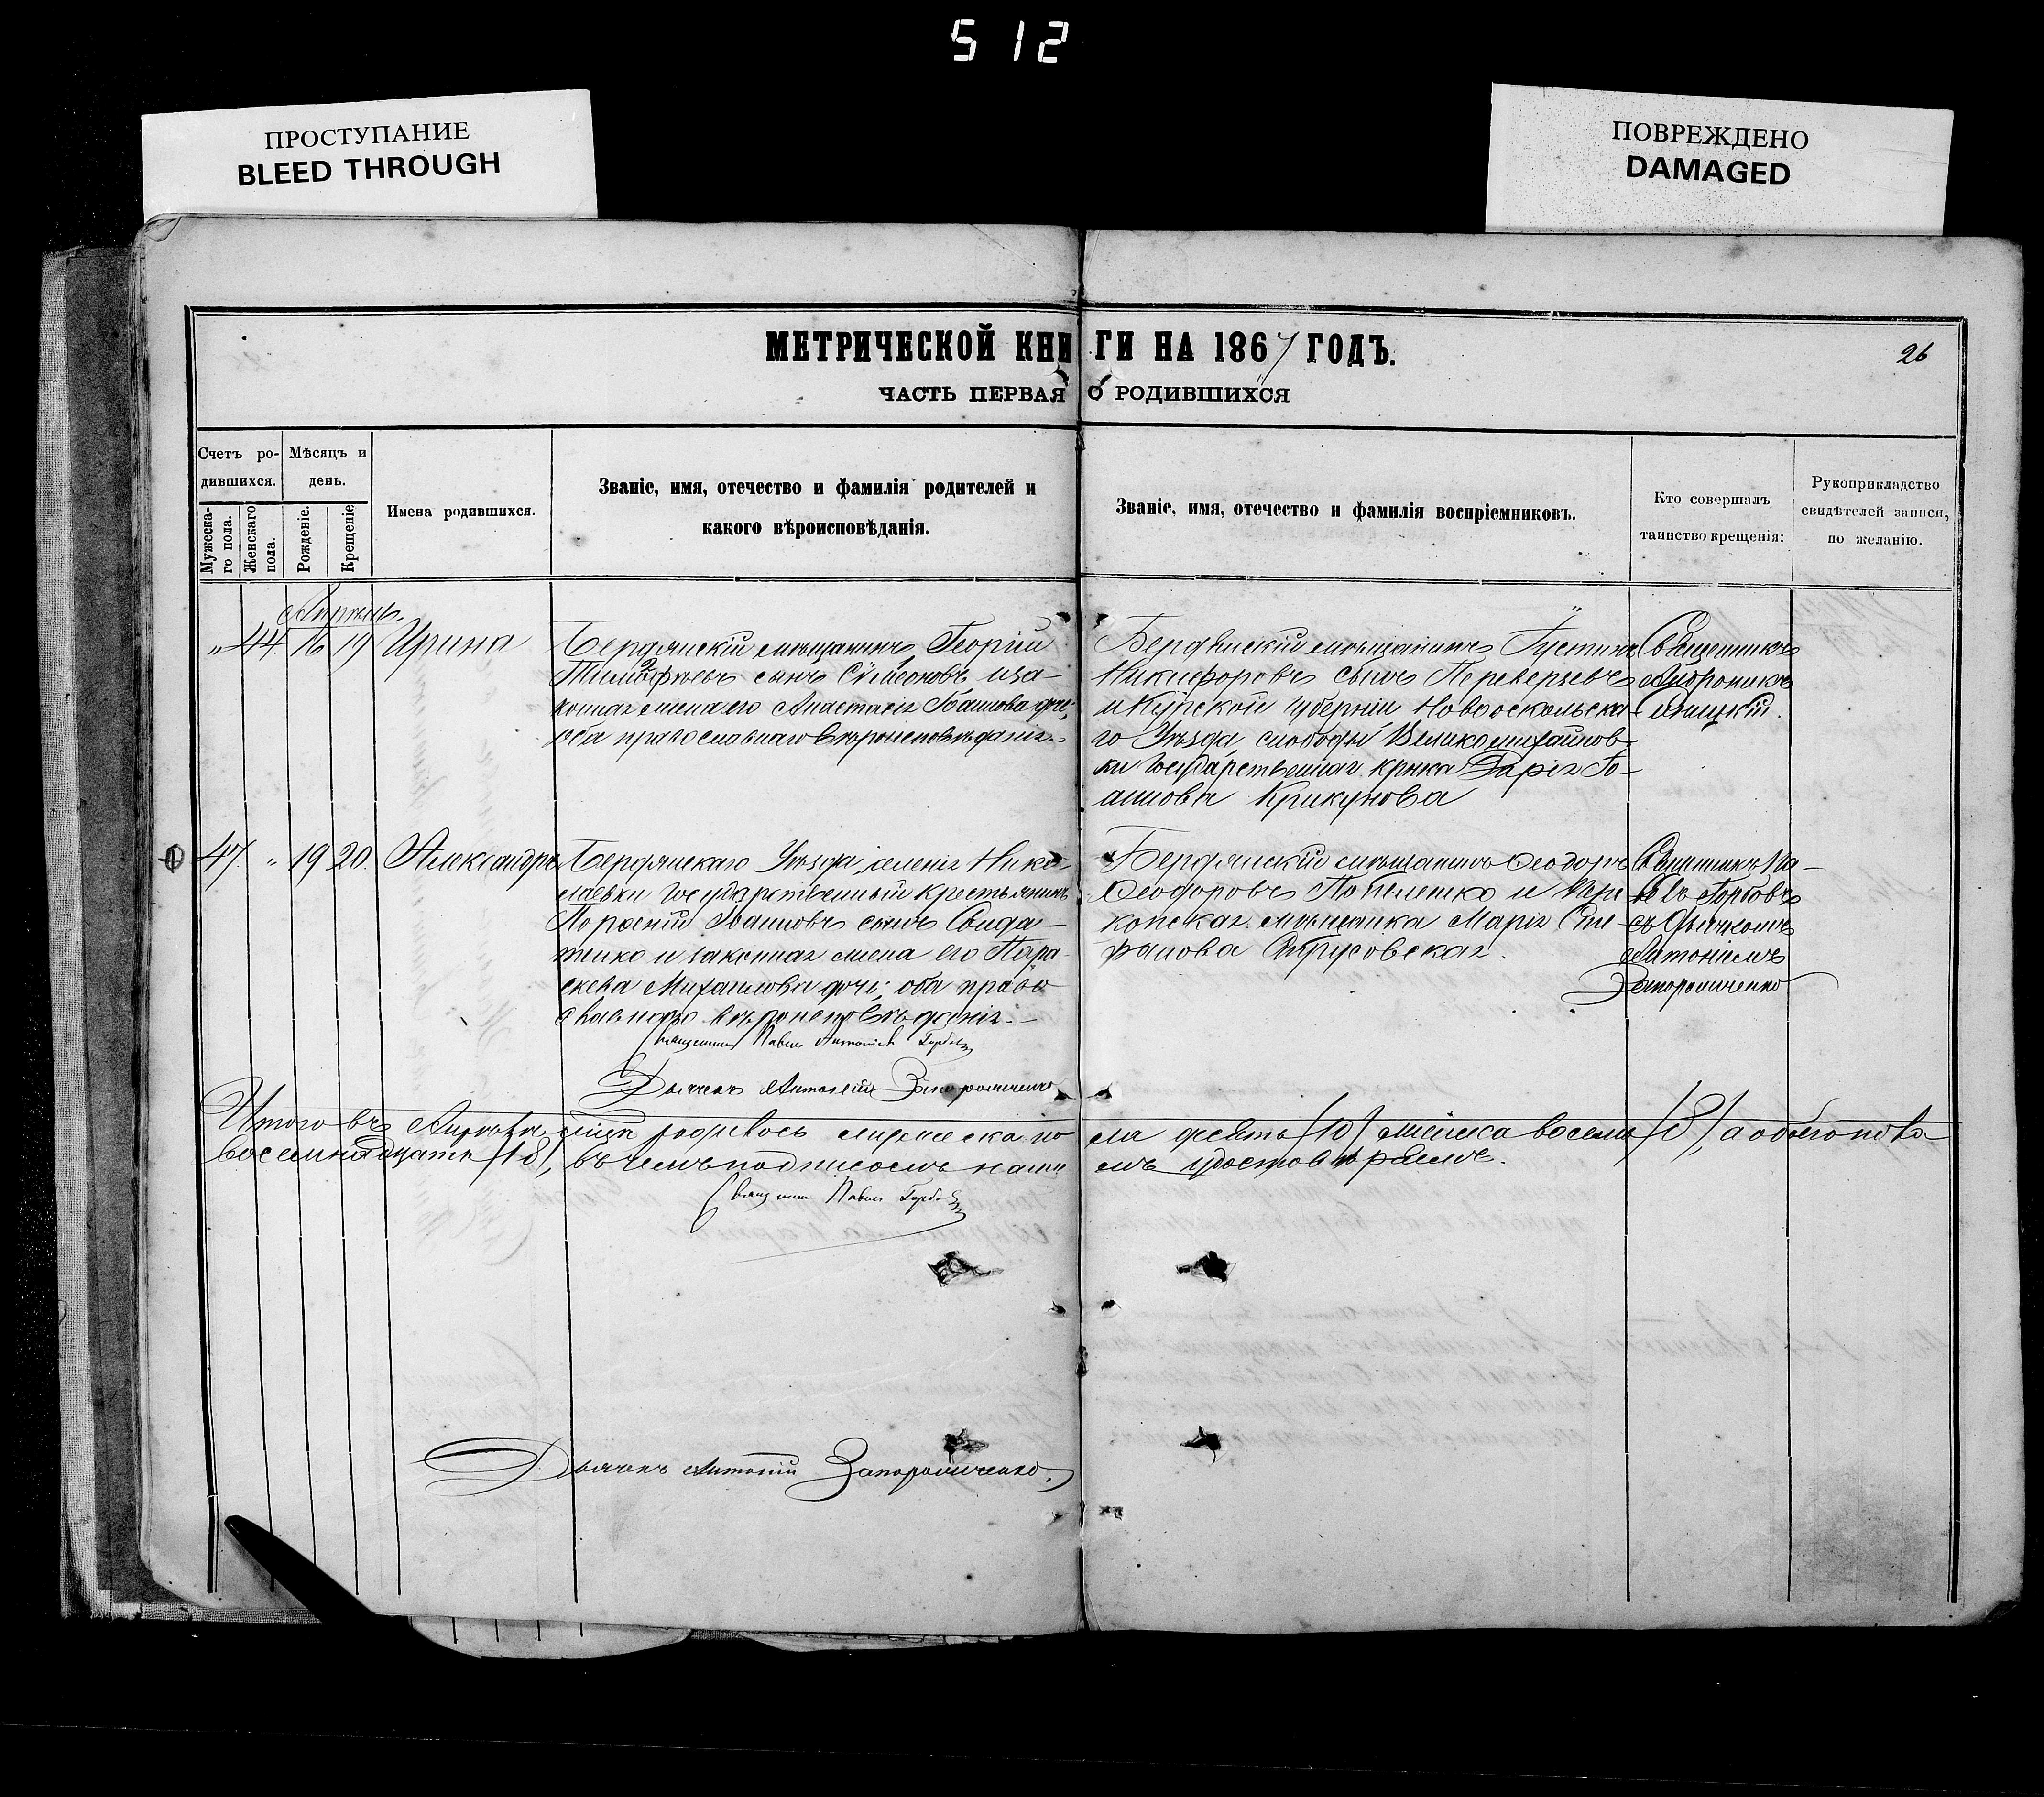 512
ПРОСТУПАНИЕ
BLEED THROUGH
ПОВРЕЖДЕНО
DAMAGED
МЕТРИЧЕСКОЙ КНИГИ НА 1867 ГОДЪ.
26
ЧАСТЬ ПЕРВАЯ О РОДИВШИХСЯ
Счетъ ро-
дившихся.
Мужеска-
го пола.
Женскаго
пола.
Мѣсяцъ и
день.
Рожденіе.
Крещеніе
Имена родившихся.
Званіе, имя, отечество и фамилія родителей и
какого вѣроисповѣданія.
Званіе, имя, отечество и фамилія воспріемниковъ.
Кто совершалъ
таинство крещенія:
Рукоприкладство
свидѣтелей записи,
по желанію.
Апрель.
" 44. 16 19 Ирина
Бердянскій мѣщанинъ Георгій
Тимофѣевъ сынъ Сѵмеоновъ и за-
конная жена его Анастасія Іоаннова дочь;
оба православнаго вѣроисповѣданія.
Бердянскій мѣщанинъ Іустинъ
Никифоровъ сынъ Переверзевъ
и Курской губерніи Новооскольска-
го Уѣзда, слободы Великомихайлов-
ки государственная крнка Дарія Іо-
аннова Крикунова
Священникъ
Андроникъ
47. " 19 20. Александръ
Бердянскаго Уѣзда, селенія Нико-
лаевки государственный крестьянинъ
Іоанновъ сынъ Свида-
тенко и законная жена его Пара-
скева Михаилова дочь; оба право-
славнаго вѣроисповѣданія.-
Бердянскій мѣщанинъ Ѳеодоръ
Ѳеодоровъ Попеленко и Пере-
копская мѣщанка Марія Сте-
фанова
Священникъ Па-
велъ Горбовъ
съ Дьячкомъ
Антоніемъ
Запорожченко
Священникъ Павелъ Антоніевъ Горбовъ
Дьячекъ Антоній Запорожченко
Итого въ Апрѣлѣ мцѣ родилось мужеска по
ла десять (10) женска восемь (8), а обоего пола
восемнадцать (18), въ чемъ подписомъ наши
мъ удостовѣряемъ.
Священникъ Павелъ Горбовъ
Дьячекъ Антоній Запорожченко.